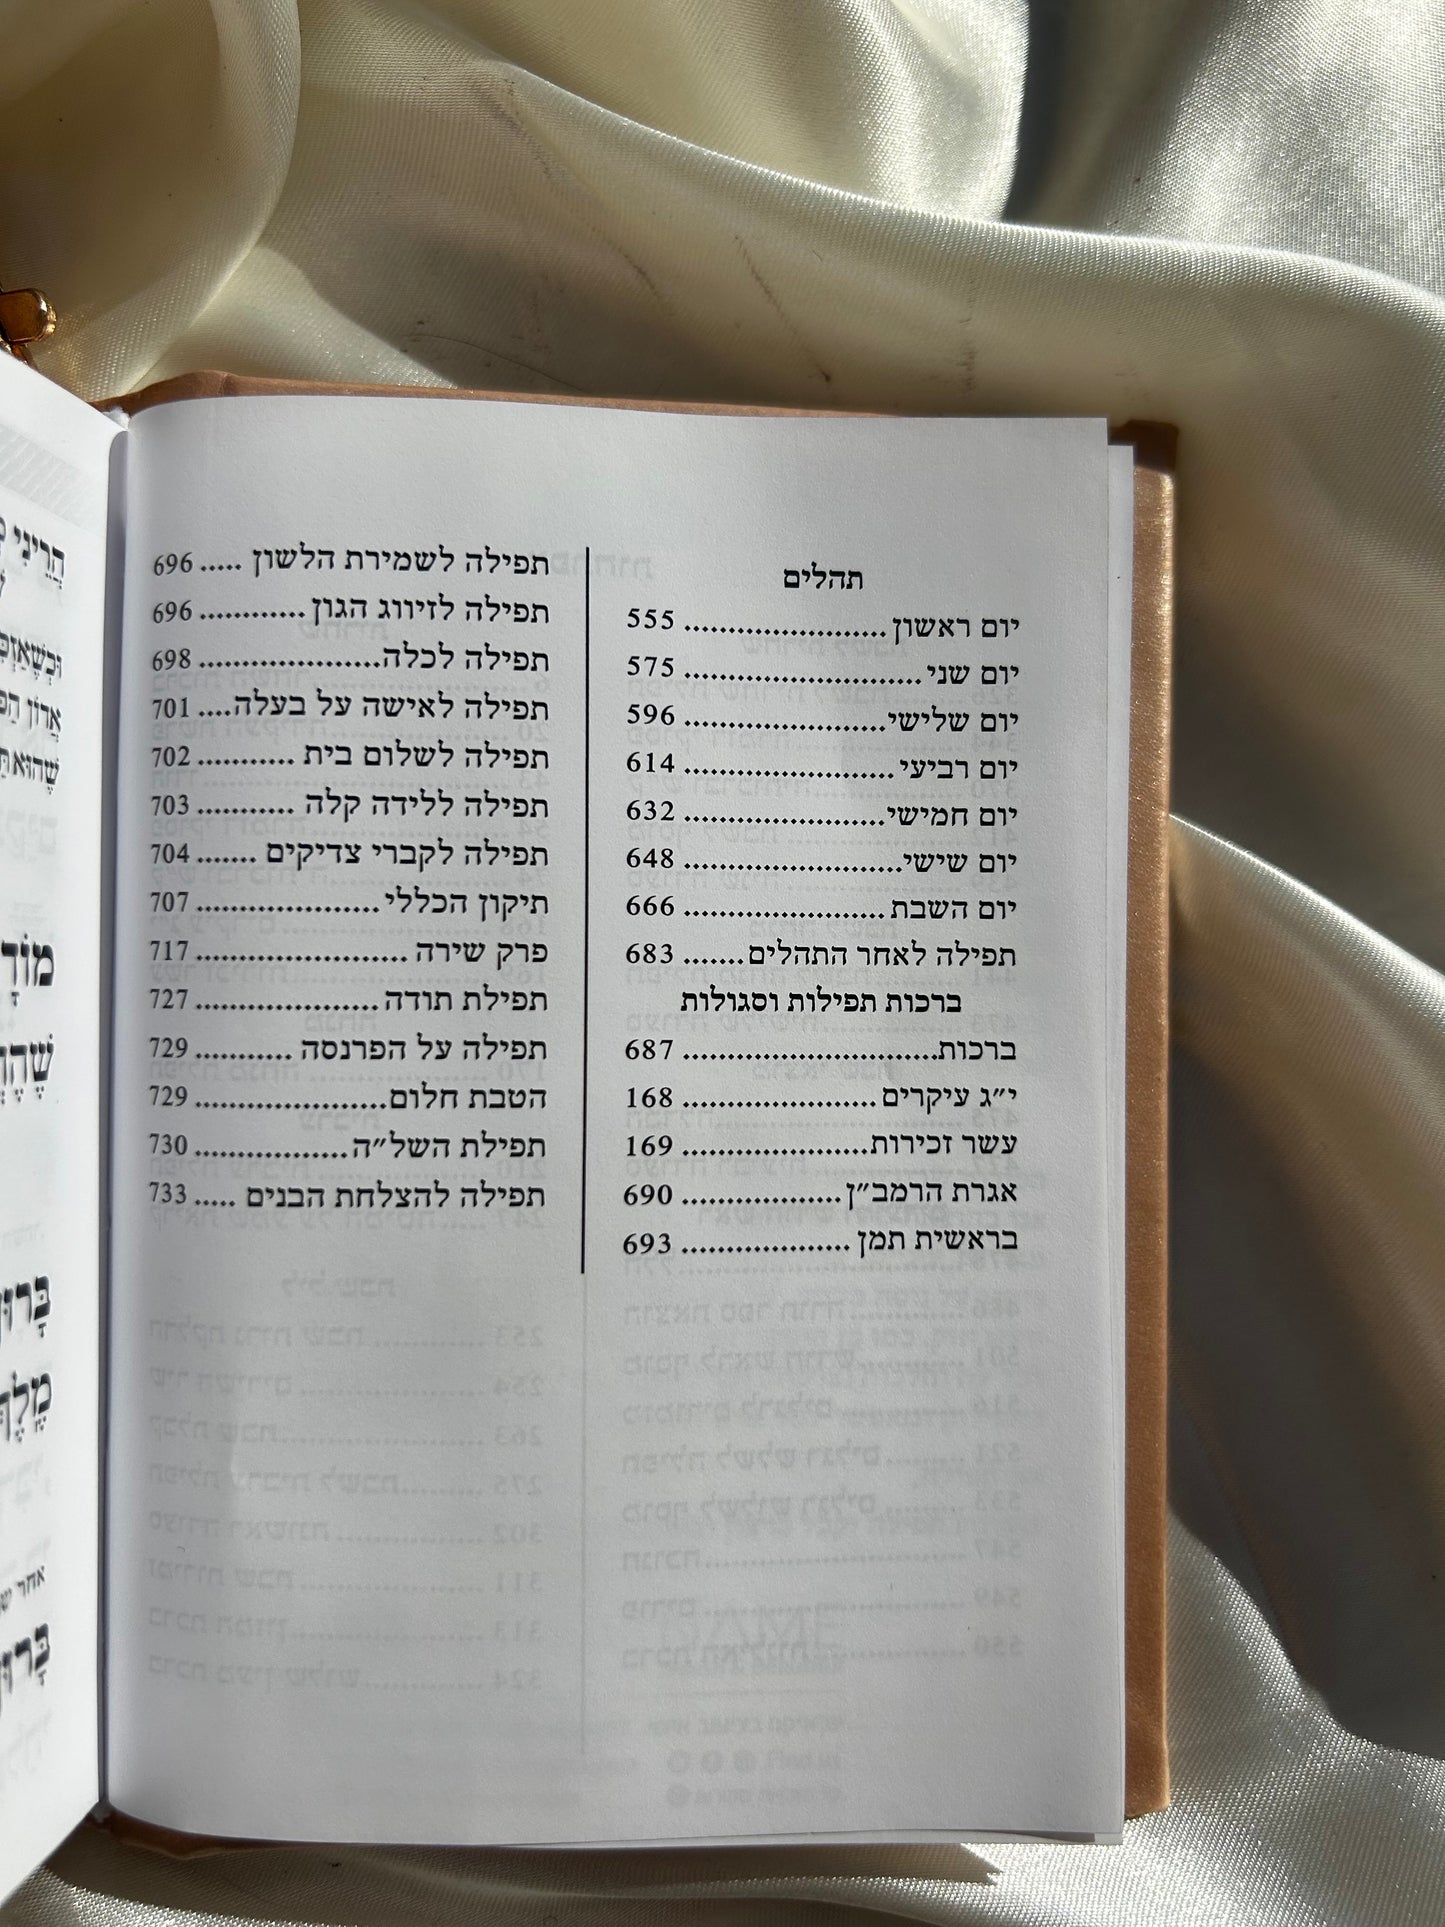 תהלים
יום ראשון....................... 555
יום שני........................... 575
יום שלישי....................... 596
יום רביעי........................ 614
יום חמישי....................... 632
יום שישי......................... 648
יום השבת....................... 666
תפילה לאחר התהלים....... 683
ברכות תפילות וסגולות
ברכות............................. 687
י״ג עיקרים...................... 168
עשר זכירות..................... 169
אגרת הרמב״ן.................. 690
בראשית תמן ................... 693
תפילה לשמירת הלשון ..... 696
תפילה לזיווג הגון ............ 696
תפילה לכלה..................... 698
תפילה לאישה על בעלה.... 701
תפילה לשלום בית ........... 702
תפילה ללידה קלה ........... 703
תפילה לקברי צדיקים ....... 704
תיקון הכללי..................... 707
פרק שירה ........................ 717
תפילת תודה..................... 727
תפילה על הפרנסה ........... 729
הטבת חלום...................... 729
תפילת השל״ה.................. 730
תפילה להצלחת הבנים ..... 733
הֲרֵינִי
מוֹדָ
אחר